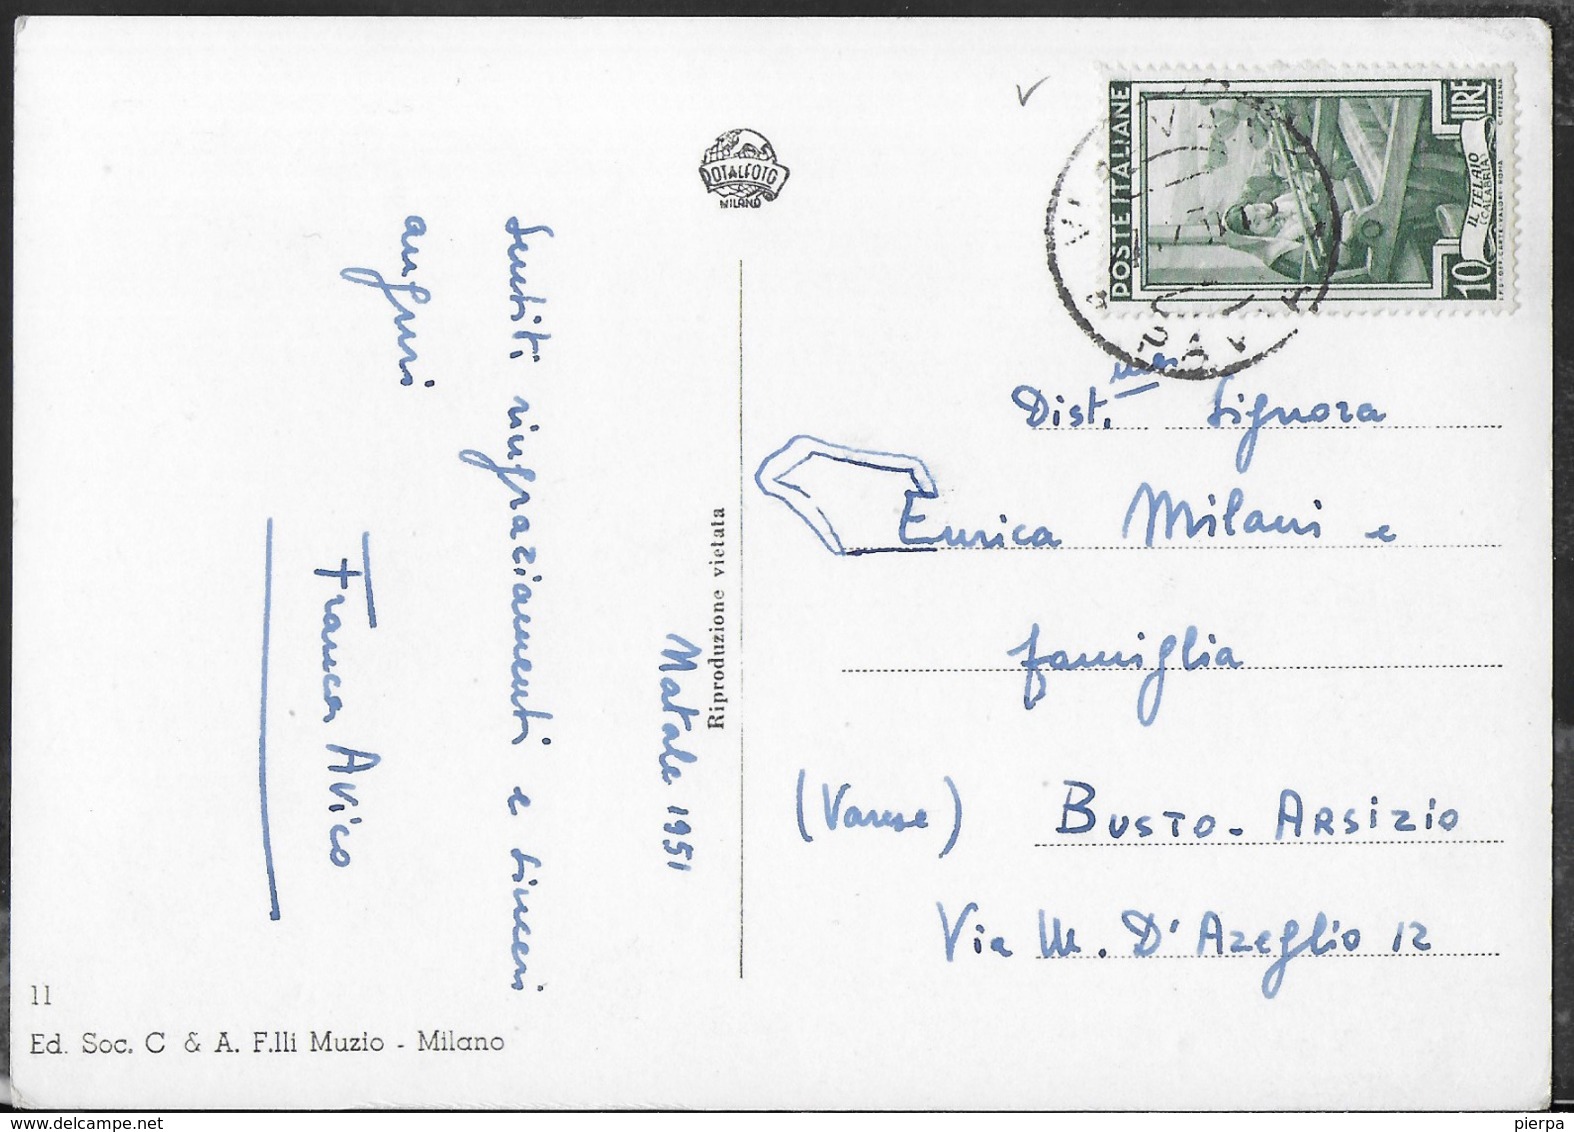 Sentiti ringraziamenti e sinceri
auguri
Franca Avico
Natale 1951
Riproduzione vietata
11
Ed. Soc. C & A. F.lli Muzio - Milano
ROTALFOTO
MILANO
POSTE ITALIANE
10 LIRE
IL TELAIO
(CALABRIA)
I.P.S.-OFF.CARTE-VALORI-ROMA
C. MEZZANA
PAVIA
Dist.ma Signora
Enrica Milani e
famiglia
(Varese) BUSTO-ARSIZIO
Via M. D'Azeglio 12
pierpa